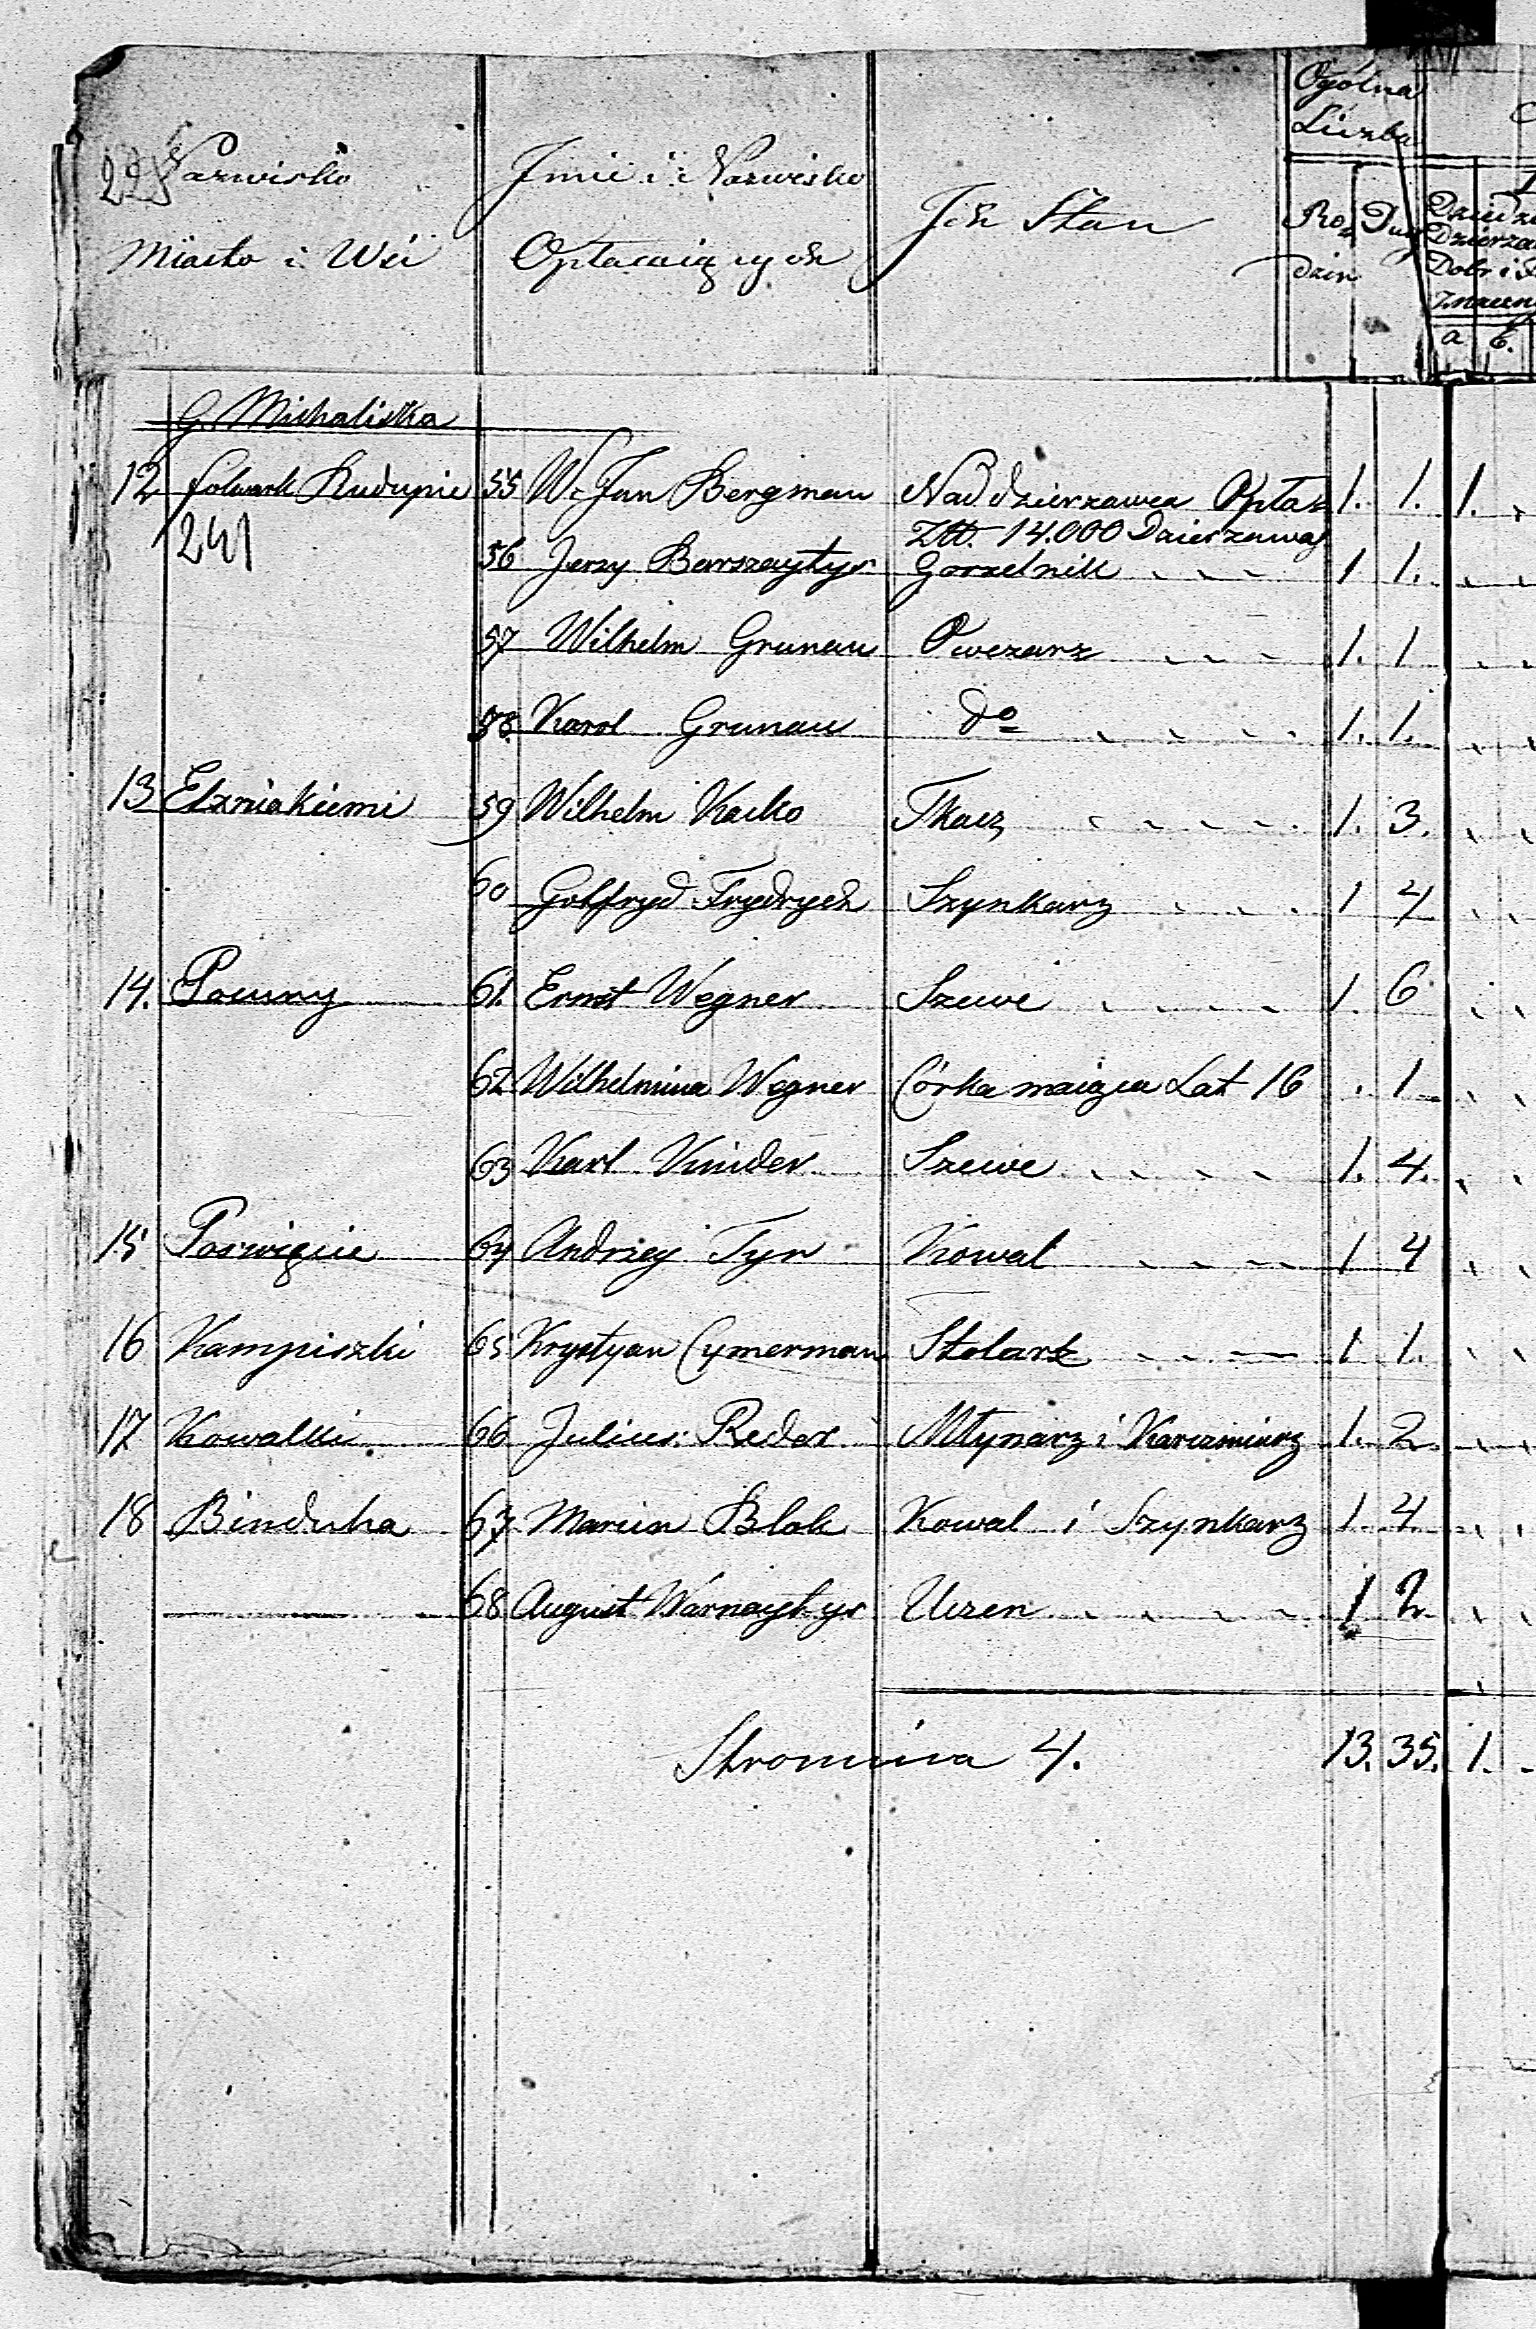 Ogólna
Liczba
Nazwisko
Imie i Nazwisko
Ich Stan
Ro= Dusz
dzin
Miasto i Wsi
Opłacaiących
a b.
G. Michaliszka
12 folwark Rudupie 55 W. Jan Bergman Nad dzierzawca Opłaz 1. 1. 1.
241
Złt. 14.000 Dzierzawy
56 Jerzy Barszaytys Gorzelnik 1 1.
57 Wilhelm Grunau Owczarz 1. 1
58. Karol Grunau do 1. 1.
13 Elzniakiemi 59 Wilhelm Kacko Tkacz 1. 3.
60 Gotfryd Frydrych Szynkarz 1 4
14. Powsny 61. Ernst Wegner Szewc 1. 6
62 Wilhelmina Wegner Córka maiąca Lat 16 . 1
63 Karl Kinder Szewc 1. 4.
15 Poswięcie 64 Andrzey Tyr Kowal 1 4
16 Kampiszki 65 Krystyan Cymerman Stolarz 1 1.
17 Kowalki 66 Julius Reder Młynarz i Karczmarz 1. 2
18 Binduha 67 Marcin Blok Kowal i Szynkarz 1 4
68 August Warnaytys Uczen 1 2
Stronnica 4. 13. 35. 1.